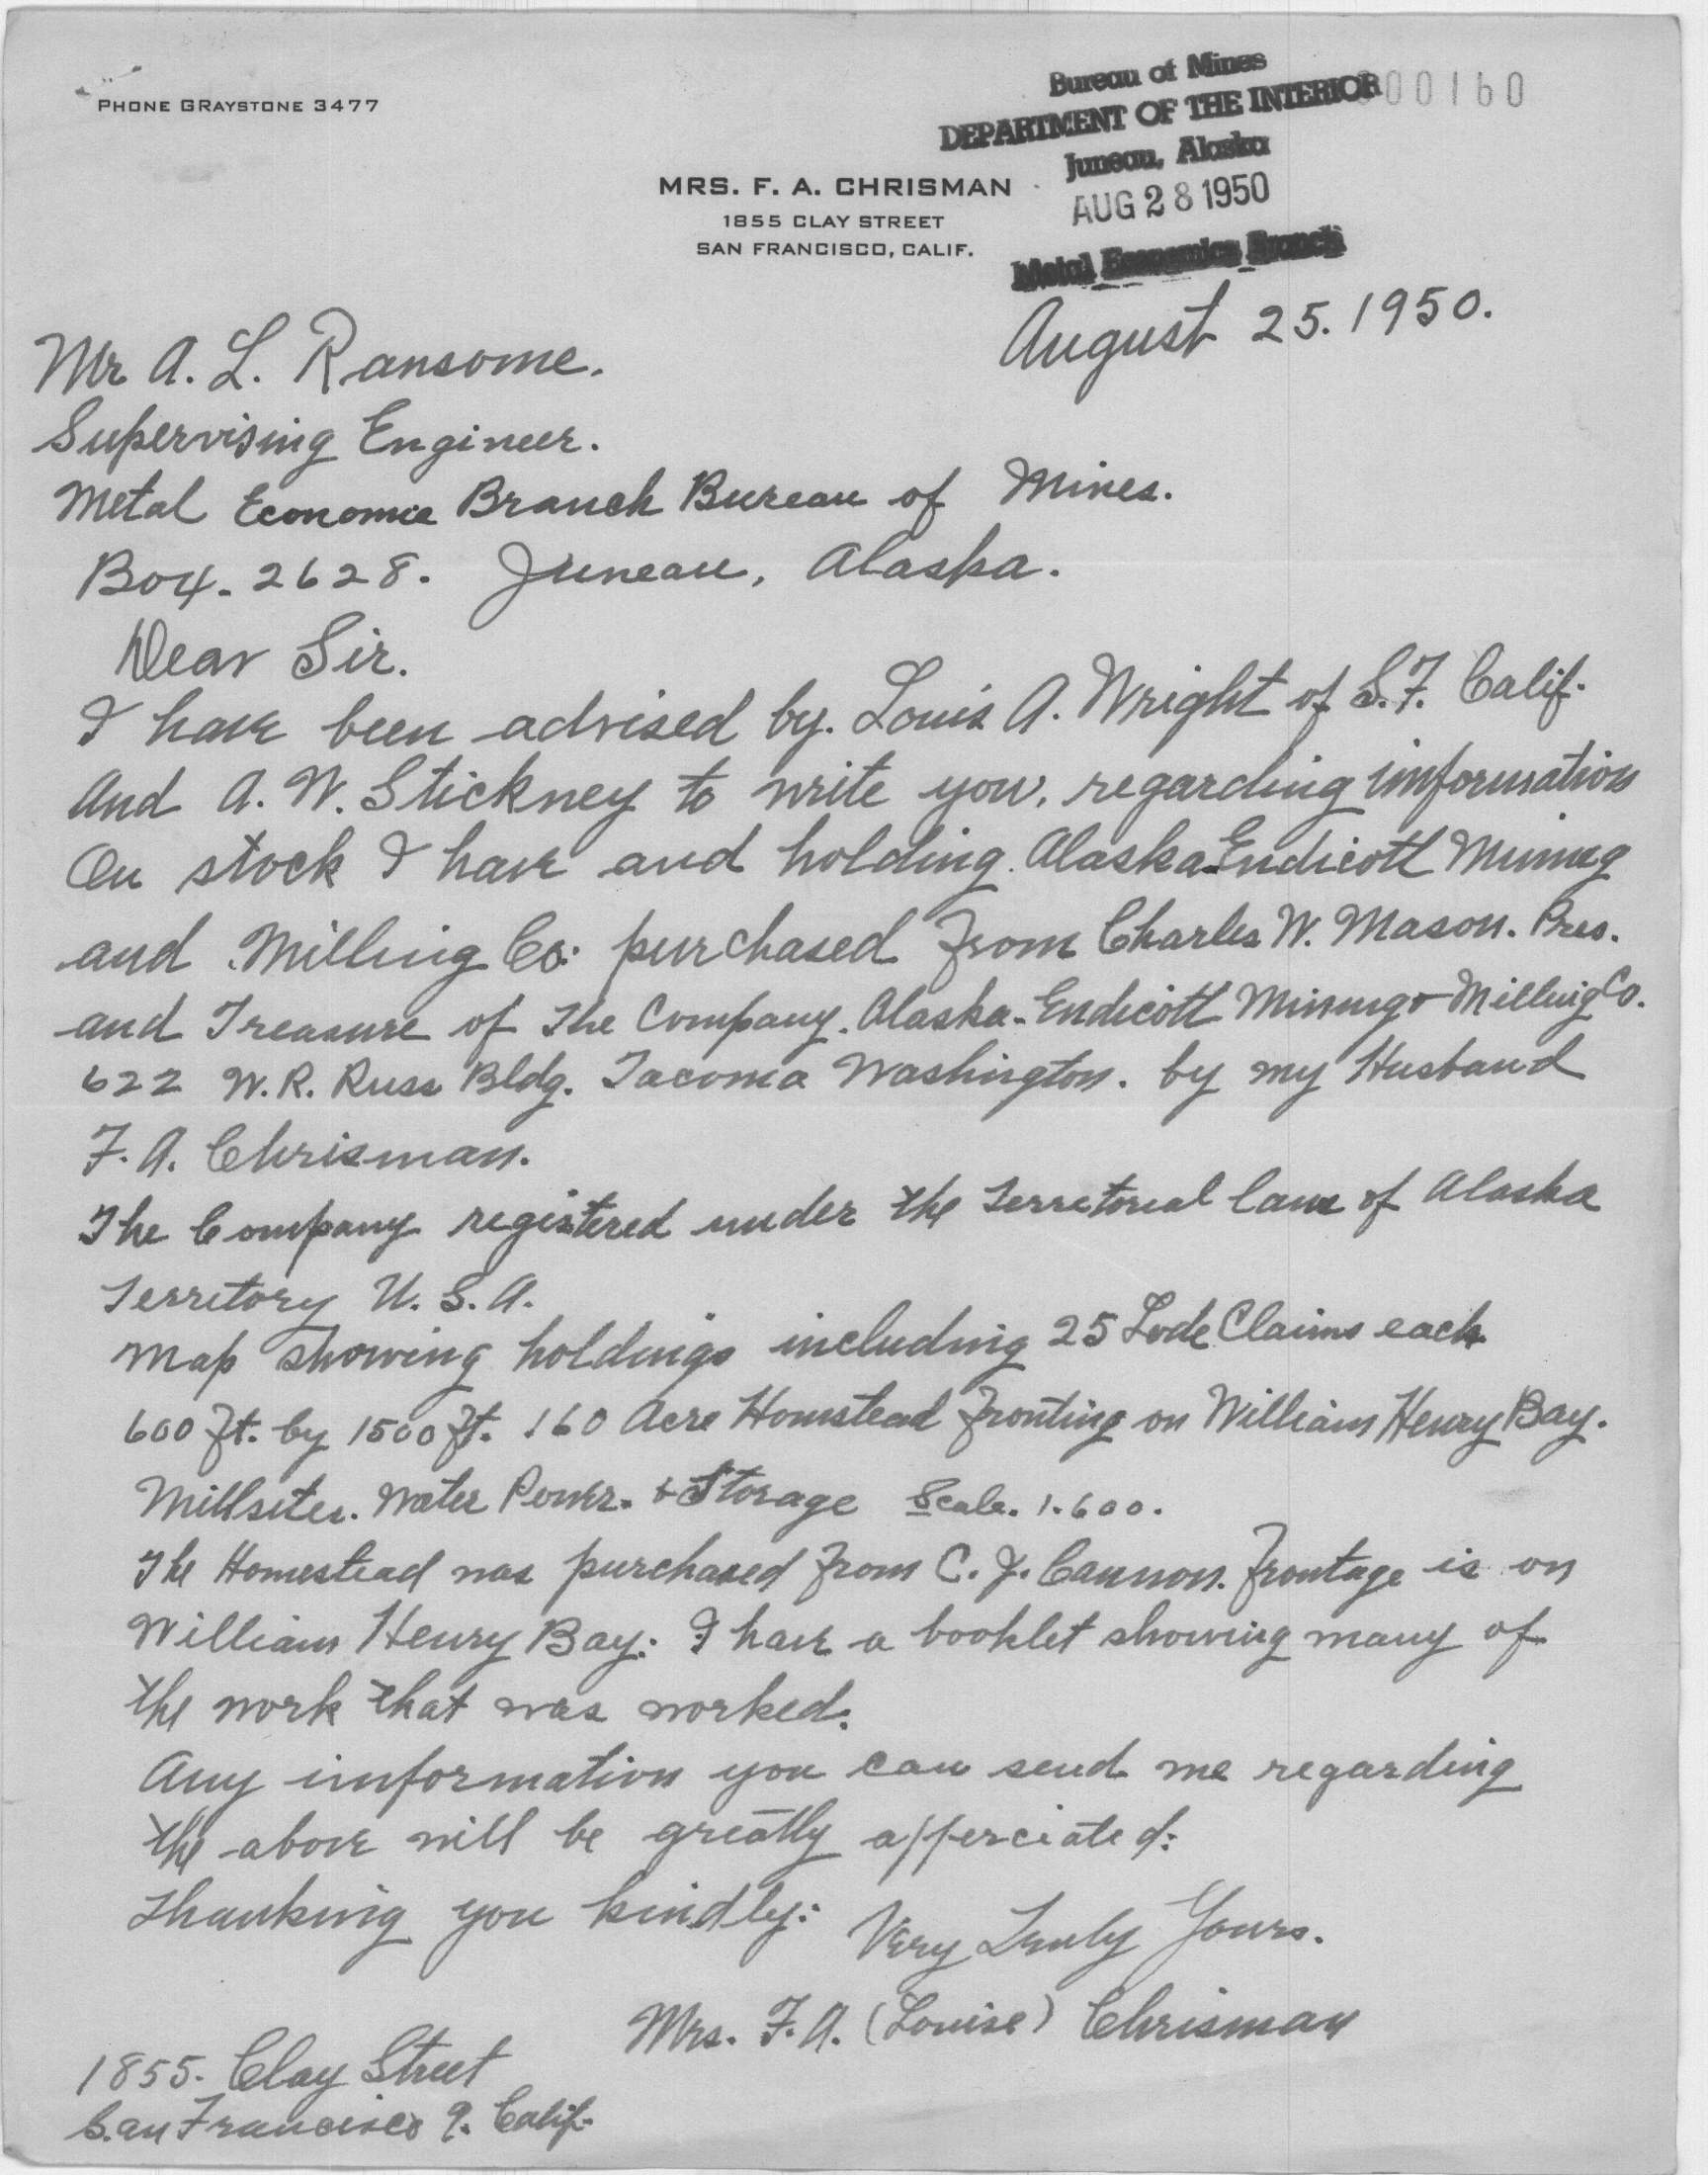 PHONE GRAYSTONE 3477
Bureau of Mines
DEPARTMENT OF THE INTERIOR
000160
Juneau, Alaska
AUG 28 1950
Metal Economics Branch
MRS. F. A. CHRISMAN
1855 CLAY STREET
SAN FRANCISCO, CALIF.
August 25. 1950.
Mr A. L. Ransome.
Supervising Engineer.
Metal Economic Branch Bureau of Mines.
Box. 2628. Juneau, Alaska.
Dear Sir.
I have been advised by. Louis A. Wright of S.F. Calif.
And A. W. Stickney to write you, regarding imformation
On stock I have and holding. Alaska-Endicott Mining
and Milling Co: purchased from Charles W. Mason. Pres.
and Treasure of The Company. Alaska-Endicott Mining & Milling Co.
622 W.R. Russ Bldg. Tacoma Washington. by my Husband
F. A. Chrisman.
The Company registered under the Territorial laws of Alaska
Territory U. S. A.
Map showing holdings including 25 Lode Claims each
600 ft. by 1500 ft. 160 Acre Homstead fronting on William Henry Bay.
Millsites. Water Power. & Storage Scale. 1-600.
The Homestead was purchased from C. J. Cannon. frontage is on
William Henry Bay: I have a booklet showing many of
the work that was worked.
Any imformation you can send me regarding
the above will be greatly apperciated:
Thanking you kindly:
Very Truly Yours.
Mrs. F. A. (Louise) Chrisman
1855. Clay Street
San Francisco 9. Calif.